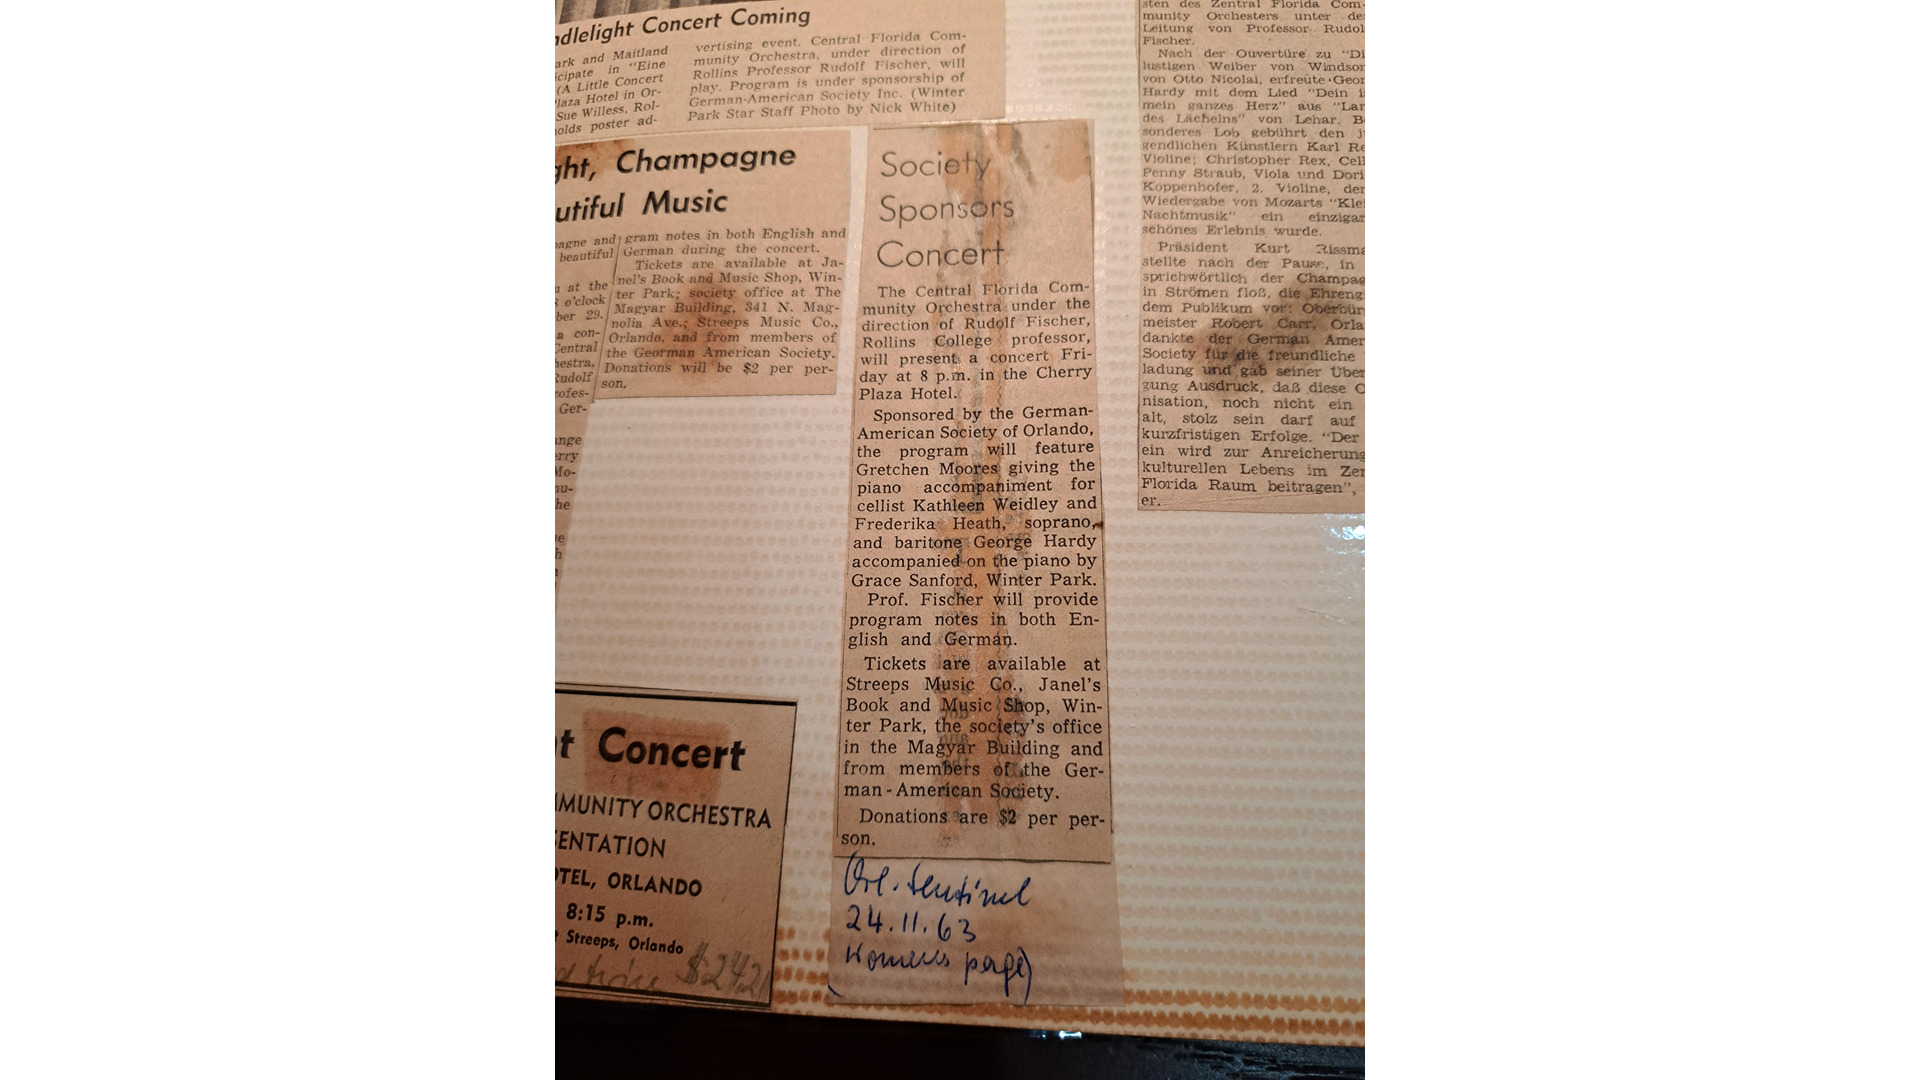 Candlelight Concert Coming
ark and Maitland
cipate in "Eine
(A Little Concert
laza Hotel in Or-
Sue Willess, Rol-
olds poster ad-
vertising event. Central Florida Com-
munity Orchestra, under direction of
Rollins Professor Rudolf Fischer, will
play. Program is under sponsorship of
German-American Society Inc. (Winter
Park Star Staff Photo by Nick White)
ght, Champagne
utiful Music
agne and
beautiful
at the
o'clock
ber 29.
a con-
Central
hestra,
Rudolf
rofes-
Ger-
ange
erry
Mo-
nu-
he
gram notes in both English and
German during the concert.
Tickets are available at Ja-
nel's Book and Music Shop, Win-
ter Park; society office at The
Magyar Building, 341 N. Mag-
nolia Ave.; Streeps Music Co.,
Orlando, and from members of
the Georman American Society.
Donations will be $2 per per-
son.
t Concert
MUNITY ORCHESTRA
ENTATION
OTEL, ORLANDO
8:15 p.m.
Streeps, Orlando
twice $2421
Society
Sponsors
Concert
The Central Florida Com-
munity Orchestra under the
direction of Rudolf Fischer,
Rollins College professor,
will present a concert Fri-
day at 8 p.m. in the Cherry
Plaza Hotel.
Sponsored by the German-
American Society of Orlando,
the program will feature
Gretchen Moores giving the
piano accompaniment for
cellist Kathleen Weidley and
Frederika Heath, soprano,
and baritone George Hardy
accompanied on the piano by
Grace Sanford, Winter Park.
Prof. Fischer will provide
program notes in both En-
glish and German.
Tickets are available at
Streeps Music Co., Janel's
Book and Music Shop, Win-
ter Park, the society's office
in the Magyar Building and
from members of the Ger-
man-American Society.
Donations are $2 per per-
son.
Orl. Sentinel
24.11.63
Womens page)
sten des Zentral Florida Com-
munity Orchesters unter de
Leitung von Professor Rudol
Fischer.
Nach der Ouvertüre zu "Di
lustigen Weiber von Windsor
von Otto Nicolai, erfreute Geor
Hardy mit dem Lied "Dein i
mein ganzes Herz" aus "Lan
des Lächelns" von Lehar. B
sonderes Lob gebührt den j
gendlichen Künstlern Karl Re
Violine; Christopher Rex, Cell
Penny Straub, Viola und Dori
Koppenhofer, 2. Violine, der
Wiedergabe von Mozarts "Klei
Nachtmusik" ein einzigar
schönes Erlebnis wurde.
Präsident Kurt Rissma
stellte nach der Pause, in
sprichwörtlich der Champag
in Strömen floß, die Ehreng
dem Publikum vor: Oberbür
meister Robert Carr, Orla
dankte der German Amer
Society für die freundliche
ladung und gab seiner Über
gung Ausdruck, daß diese O
nisation, noch nicht ein
alt, stolz sein darf auf
kurzfristigen Erfolge. "Der
ein wird zur Anreicherung
kulturellen Lebens im Zen
Florida Raum beitragen",
er.